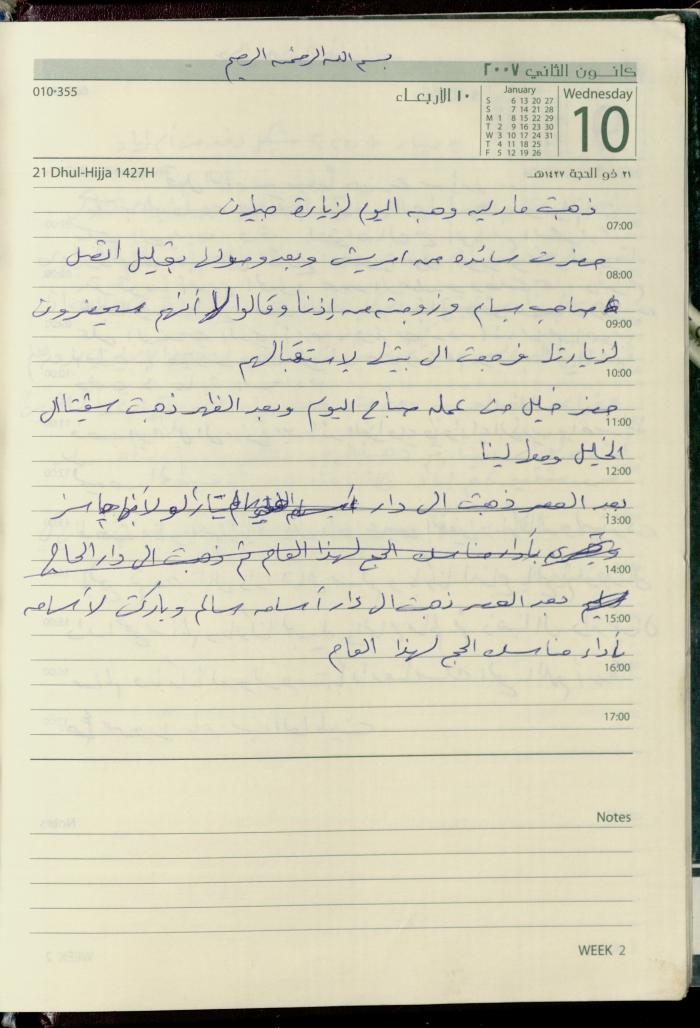 بسم الله الرحمن الرحيم
كانون الثاني ٢٠٠٧
010-355
١٠ الأربعاء
January
S 6 13 20 27
S 7 14 21 28
M 1 8 15 22 29
T 2 9 16 23 30
W 3 10 17 24 31
T 4 11 18 25
F 5 12 19 26
Wednesday
10
21 Dhul-Hijja 1427H
٢١ ذو الحجة ١٤٢٧هـ
ذهبت ماريه وهبه اليوم لزيارة جيلان
07:00
حضرت سائده من امريش وبعد وصولها بقليل اتصل
08:00
صاحب بسام وزوجته من إذنا وقالوا أنهم سيحضرون
09:00
لزيارتنا فرجعت الى بيتها لاستقبالهم
10:00
حضر خليل من عمله صباح اليوم وبعد الظهر ذهبت سيقتال
11:00
الخليل ومعها لينا
12:00
بعد العصر ذهبت الى دار
13:00
بأداء مناسك الحج لهذا العام ثم ذهبت الى دار الحاج
14:00
بعد العصر ذهبت الى دار أسامه سالم وباركت لأسامه
15:00
بأداء مناسك الحج لهذا العام
16:00
17:00
Notes
WEEK 2